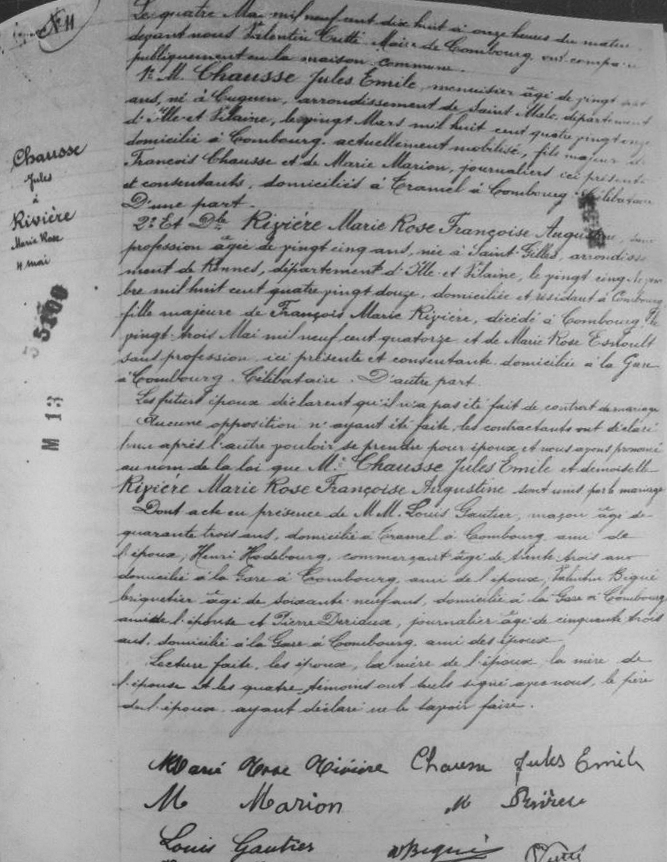 N 11
Chausse
Jules
à
Rivière
Marie Rose
4 mai
M 13
Le quatre Mai mil neuf cent dix huit à onze heures du matin
devant nous Valentin Cutté Maire de Combourg, ont comparu
publiquement en la maison commune.
1º M. Chausse Jules Emile, menuisier âgé de vingt sept
ans, né à Cuguen, arrondissement de Saint Malo, département
d'Ille et Vilaine, le vingt Mars mil huit cent quatre vingt onze
domicilié à Combourg, actuellement mobilisé, fils majeur de
François Chausse et de Marie Marion, journaliers ici présents
et consentants, domiciliés à Tramel à Combourg. Célibataire
D'une part.
2º Et Dlle Rivière Marie Rose Françoise Augustine, sans
profession âgée de vingt cinq ans, née à Saint Gilles, arrondisse
ment de Rennes, département d'Ille et Vilaine, le vingt cinq
bre mil huit cent quatre vingt douze, domiciliée et résidant à Combourg
fille majeure de François Marie Rivière, décédé à Combourg le
vingt trois Mai mil neuf cent quatorze et de Marie Rose Esnoult
sans profession ici présente et consentante domiciliée à la Gare
à Combourg. Célibataire. D'autre part.
Les futurs époux déclarent qu'il n'a pas été fait de contrat de mariage
Aucune opposition n'ayant été faite, les contractants ont déclaré
l'un après l'autre vouloir se prendre pour époux et nous avons prononcé
au nom de la loi que M. Chausse Jules Emile et demoiselle
Rivière Marie Rose Françoise Augustine sont unis par le mariage
Dont acte en présence de MM. Louis Gautier, maçon âgé de
quarante trois ans, domicilié à Tramel à Combourg ami de
l'époux, Henri Hodebourg, commerçant âgé de trente trois ans
domicilié à la Gare à Combourg, ami de l'époux, Valentin Bigué
briquetier âgé de soixante neuf ans, domicilié à la Gare à Combourg
ami de l'épouse et Pierre Deridux, journalier âgé de cinquante trois
ans, domicilié à la Gare à Combourg, ami des époux
Lecture faite, les époux, la mère de l'époux la mère de
l'épouse et les quatre témoins ont seuls signé avec nous, le père
de l'époux ayant déclaré ne le savoir faire.
Marie Rose Rivière Chausse Jules Emile
M Marion M
Louis Gautier V Bigué Cutté